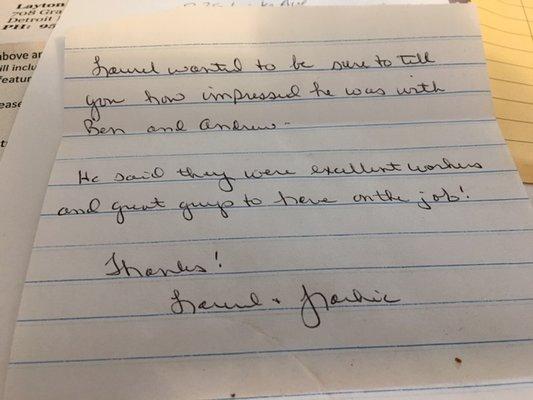 Layton
708 Gra
Detroit
PH: 95
above ar
ill inclu
featur
ease
Laurel wanted to be sure to tell
you how impressed he was with
Ben and Andrew.
He said they were excellent workers
and great guys to have on the job!
Thanks!
Laurel + Frankie